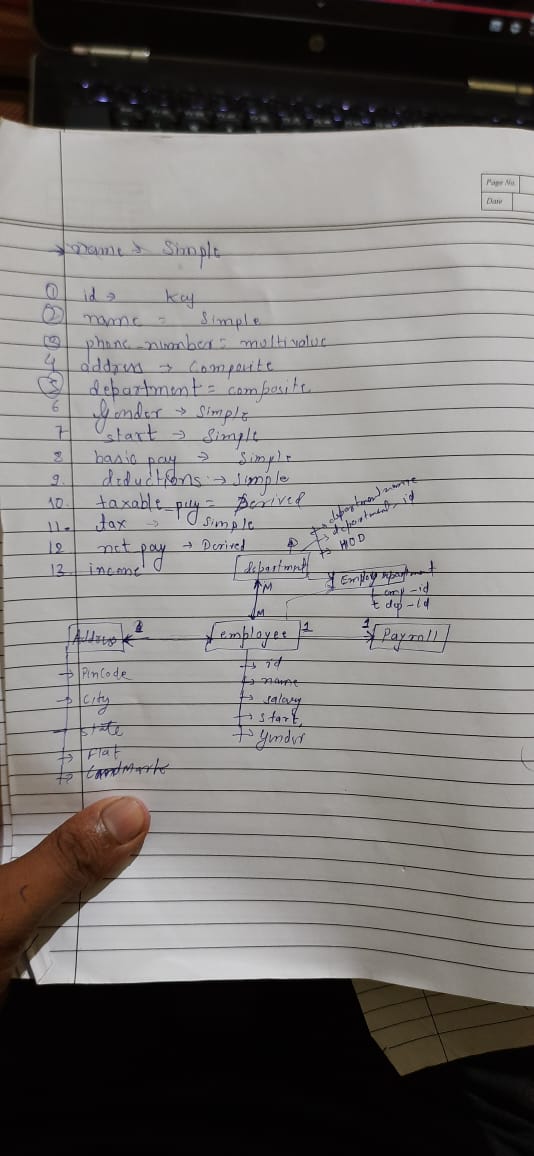 Page No.
Date
→ name → Simple
① id → Key
② name = Simple
③ phone-number = multivalue
4 address → Composite
⑤ department = composite
6 Gender → Simple
7 start → Simple
8 basic pay → Simple
9. deductions → Simple
10. taxable_pay = Derived
11. tax → Simple
12 net pay → Derived
13. income
department
→ department name
→ department, id
→ HOD
M
M
Employ
→ emp-id
→ dep-id
Address
employee 1
1 Payroll
→ id
→ name
→ salary
→ start,
→ Gender
→ Pincode
→ City
→ State
→ Flat
→ Landmark